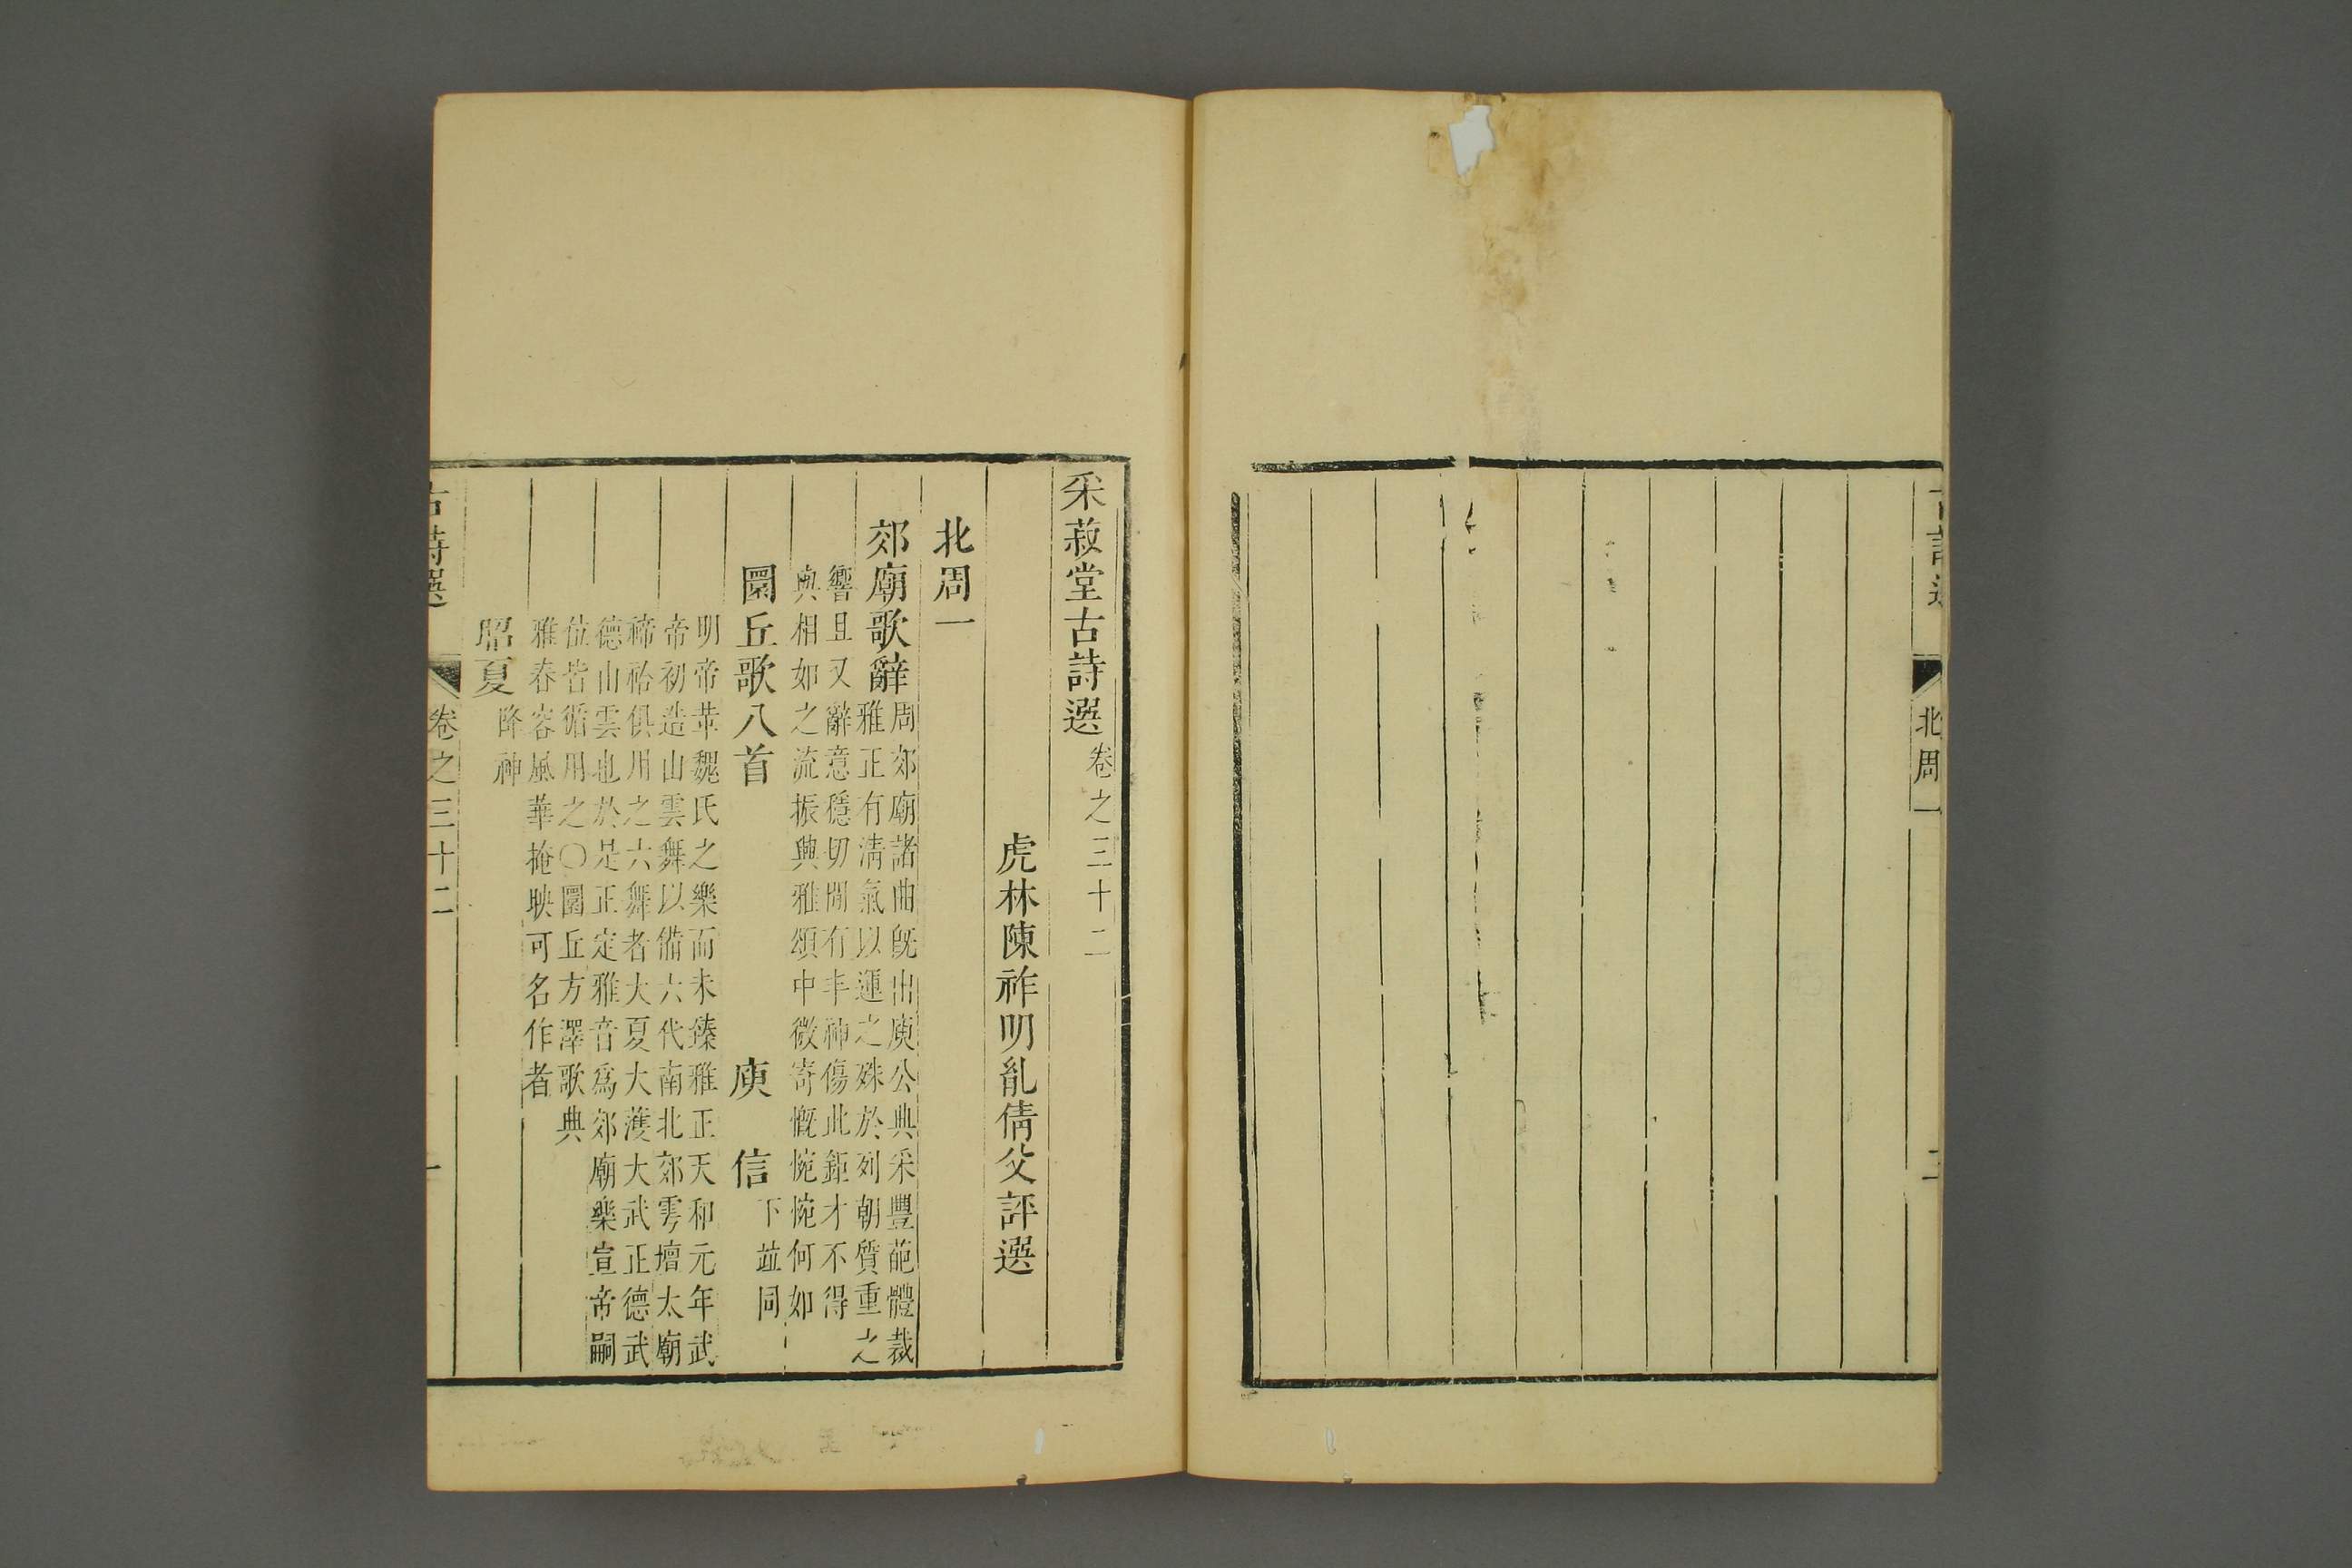 北周一
二
采菽堂古詩選卷之三十二
虎林陳祚明胤倩父評選
北周一
郊廟歌辭
周郊廟諸曲旣出庾公典采豐葩體裁
雅正有淸氣以運之殊於列朝質重之
響且又辭意穩切間有丰神傷此鉅才不得
與相如之流振興雅頌中微寄慨惋惋何如
圜丘歌八首 庾 信下並同
明帝革魏氏之樂而未臻雅正天和元年武
帝初造山雲舞以備六代南北郊雩壇太廟
禘祫俱用之六舞者大夏大濩大武正德武
德山雲也於是正定雅音爲郊廟樂宣帝嗣
位皆循用之〇圜丘方澤歌典
雅春容風華掩映可名作者
昭夏降神
古詩選 卷之三十二 一